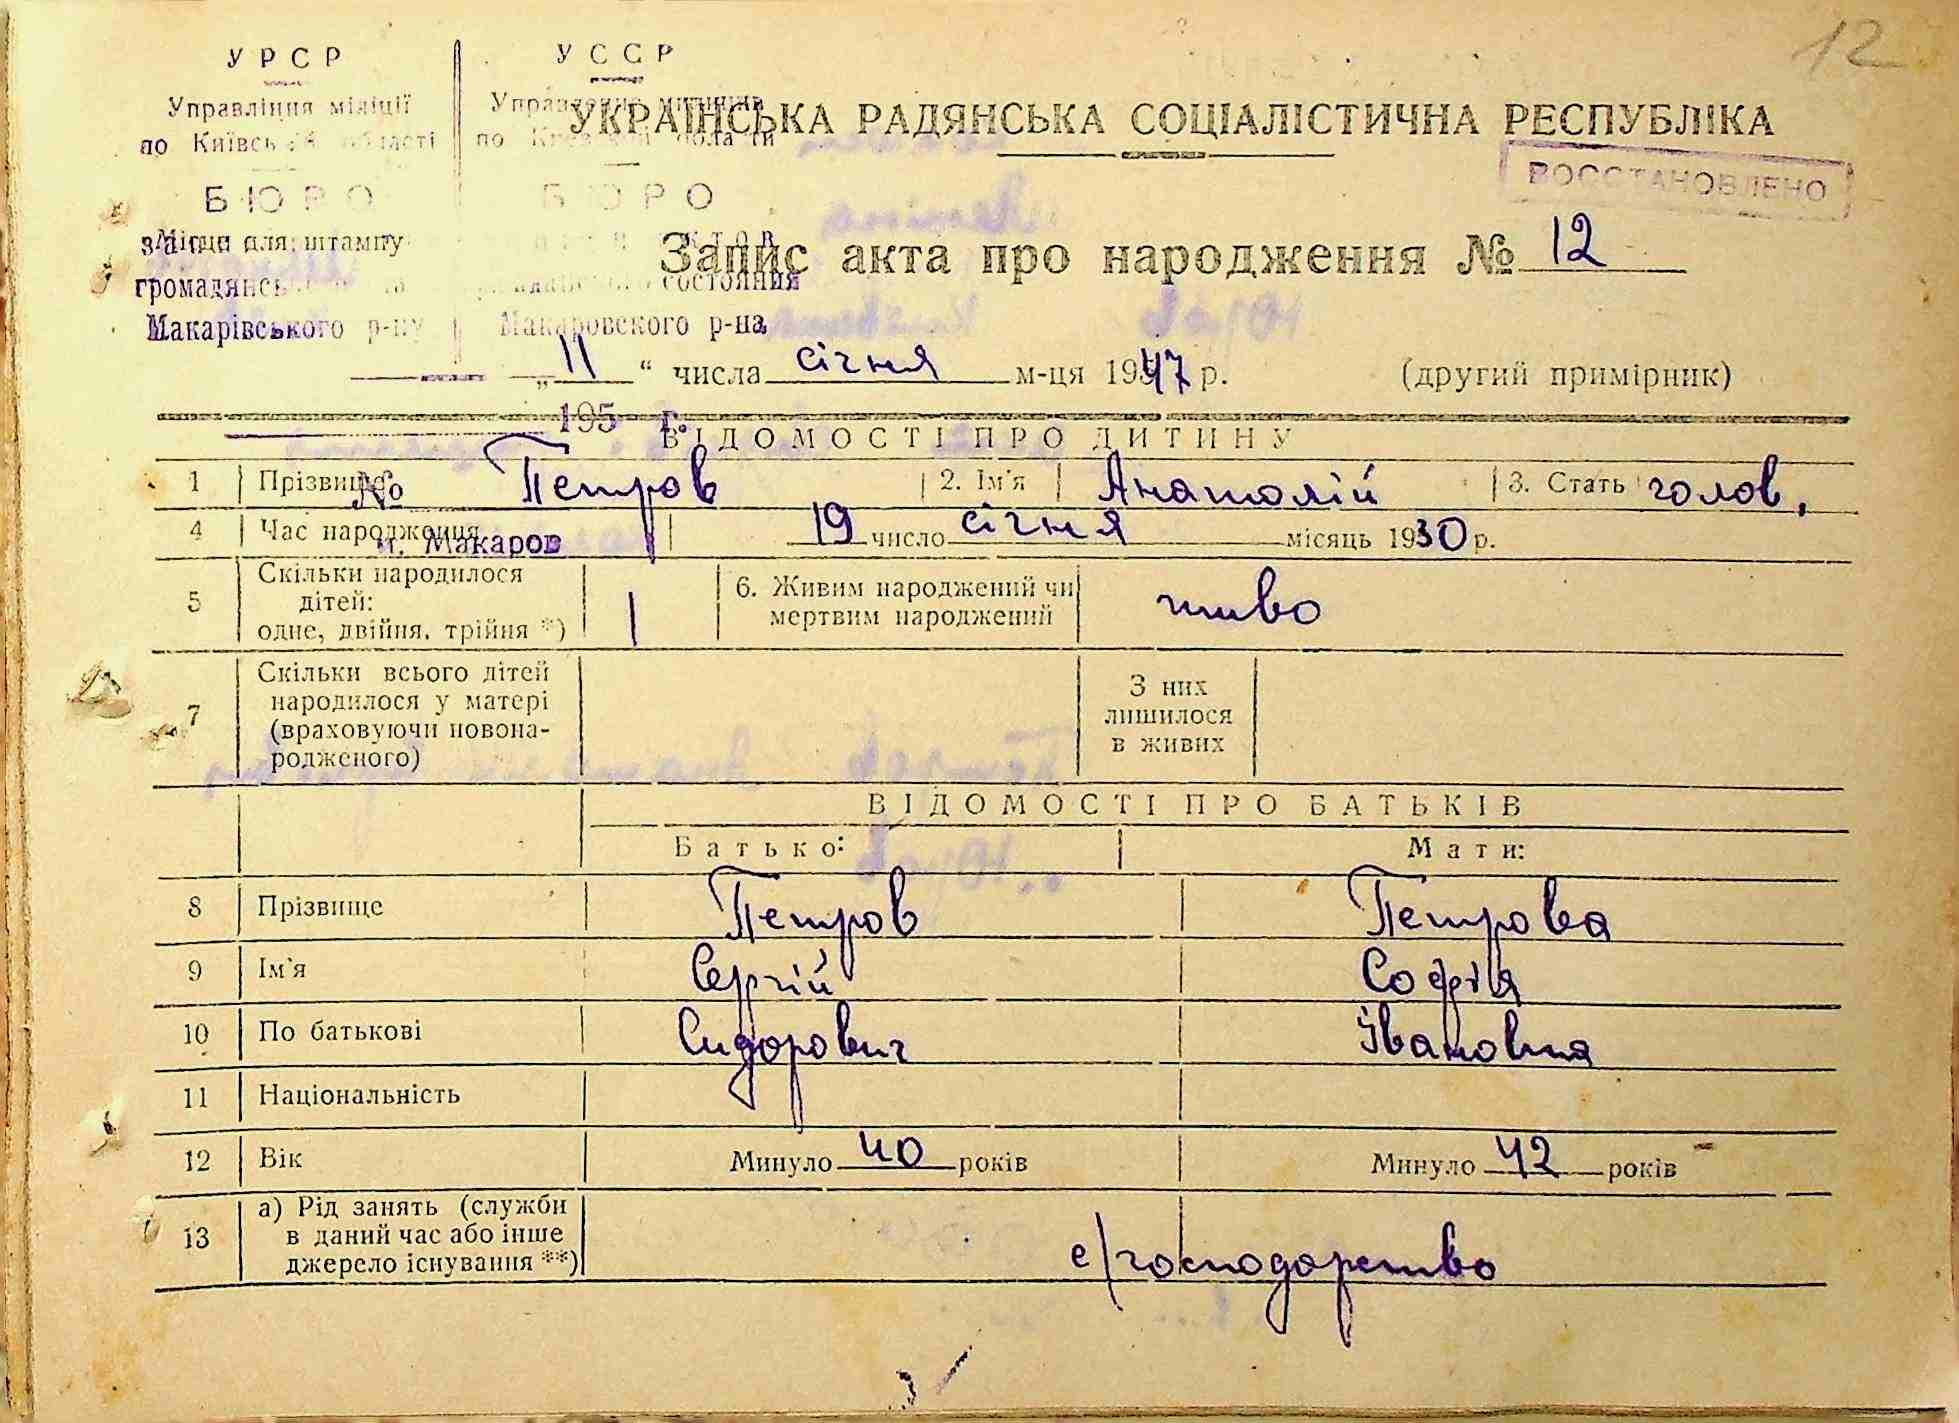 12
УРСР УССР
Управління міліції Управление милиции
по Київській області по Киевской области
УКРАЇНСЬКА РАДЯНСЬКА СОЦІАЛІСТИЧНА РЕСПУБЛІКА
ВОССТАНОВЛЕНО
БЮРО БЮРО
Місце для штампу
Запис акта про народження № 12
состояния
Макарівського р-ну Макаровского р-на
„11“ числа січня м-ця 1947 р. (другий примірник)
195 г.
ВІДОМОСТІ ПРО ДИТИНУ
1 Прізвище Петров 2. Ім'я Анатолій 3. Стать голов.
№
4 Час народження 19 число січня місяць 1930 р.
м. Макаров
5 Скільки народилося дітей: одне, двійня, трійня *) 1 6. Живим народжений чи мертвим народжений живо
7 Скільки всього дітей народилося у матері (враховуючи новонародженого) З них лишилося в живих
ВІДОМОСТІ ПРО БАТЬКІВ
Батько: Мати:
8 Прізвище Петров Петрова
9 Ім'я Сергій Софія
10 По батькові Сидорович Івановна
11 Національність
12 Вік Минуло 40 років Минуло 42 років
13 а) Рід занять (служби в даний час або інше джерело існування **) с/господарство